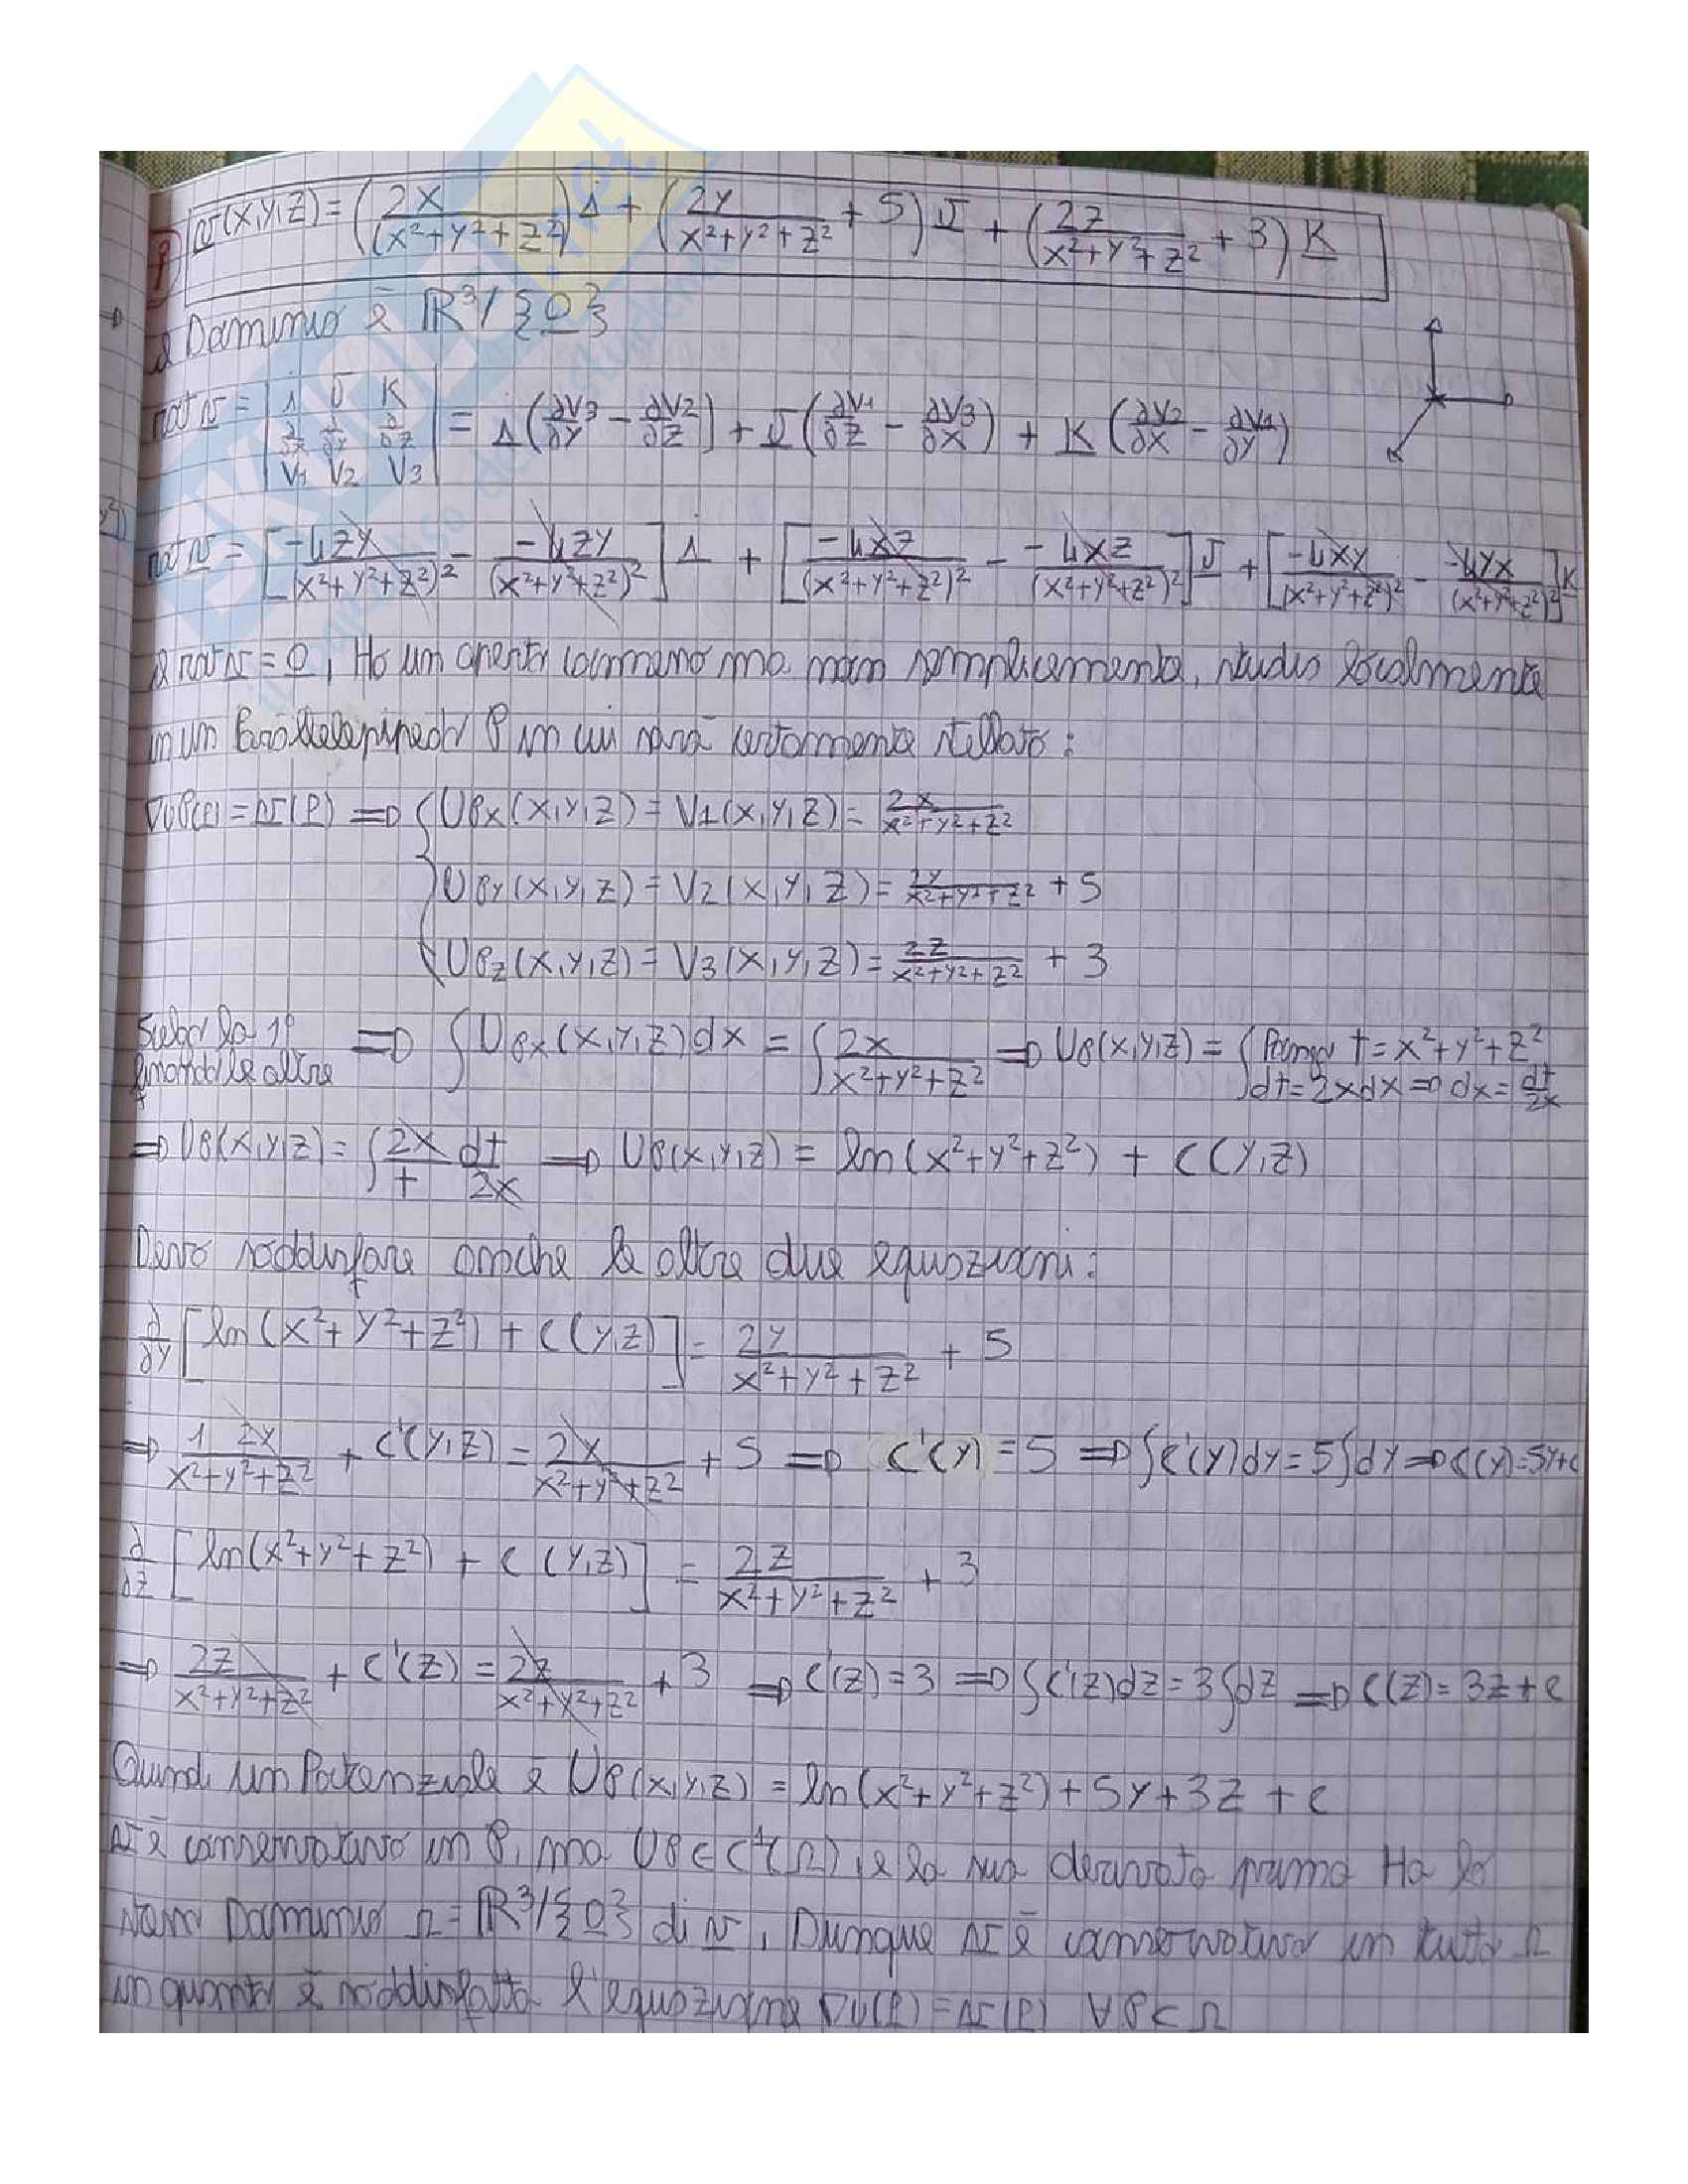 v(x,y,z) = (2x/(x²+y²+z²)) i + (2y/(x²+y²+z²) + 5) J + (2z/(x²+y²+z²) + 3) K
il Dominio è ℝ³/{0}
rot v = | i J K ; ∂/∂x ∂/∂y ∂/∂z ; V1 V2 V3 | = i (∂V3/∂y − ∂V2/∂z) + J (∂V1/∂z − ∂V3/∂x) + K (∂V2/∂x − ∂V1/∂y)
rot v = [−4zy/(x²+y²+z²)² − −4zy/(x²+y²+z²)²] i + [−4xz/(x²+y²+z²)² − −4xz/(x²+y²+z²)²] J + [−4xy/(x²+y²+z²)² − −4yx/(x²+y²+z²)²] K
il rot v = 0, Ho un aperto connesso ma non semplicemente, studio localmente
in un Parallelepipedo P in cui sarà certamente stellato:
∇UP(P) = v(P) => { UPx(x,y,z) = V1(x,y,z) = 2x/(x²+y²+z²)
UPy(x,y,z) = V2(x,y,z) = 2y/(x²+y²+z²) + 5
UPz(x,y,z) = V3(x,y,z) = 2z/(x²+y²+z²) + 3
la 1° => ∫UPx(x,y,z)dx = ∫2x/(x²+y²+z²) => UP(x,y,z) = ∫ Pongo t = x²+y²+z²
le altre dt = 2xdx => dx = dt/2x
=> UP(x,y,z) = ∫ 2x/t dt/2x => UP(x,y,z) = ln(x²+y²+z²) + C(y,z)
Devo soddisfare anche le altre due equazioni:
∂/∂y [ln(x²+y²+z²) + C(y,z)] = 2y/(x²+y²+z²) + 5
=> 1 2y/(x²+y²+z²) + C'(y,z) = 2x/(x²+y²+z²) + 5 => C'(y) = 5 => ∫C'(y)dy = 5∫dy => C(y) = 5y+c
∂/∂z [ln(x²+y²+z²) + C(y,z)] = 2z/(x²+y²+z²) + 3
=> 2z/(x²+y²+z²) + C'(z) = 2z/(x²+y²+z²) + 3 => C'(z) = 3 => ∫C'(z)dz = 3∫dz => C(z) = 3z+c
Quindi un Potenziale è UP(x,y,z) = ln(x²+y²+z²) + 5y + 3z + c
v è conservativo in P, ma UP ∈ C¹(Ω), e la sua derivata prima Ha lo
stesso Dominio Ω = ℝ³/{0} di v, Dunque v è conservativo in tutto Ω
in quanto è soddisfatta l'equazione ∇U(P) = v(P) ∀P ∈ Ω
SKUOLA.net